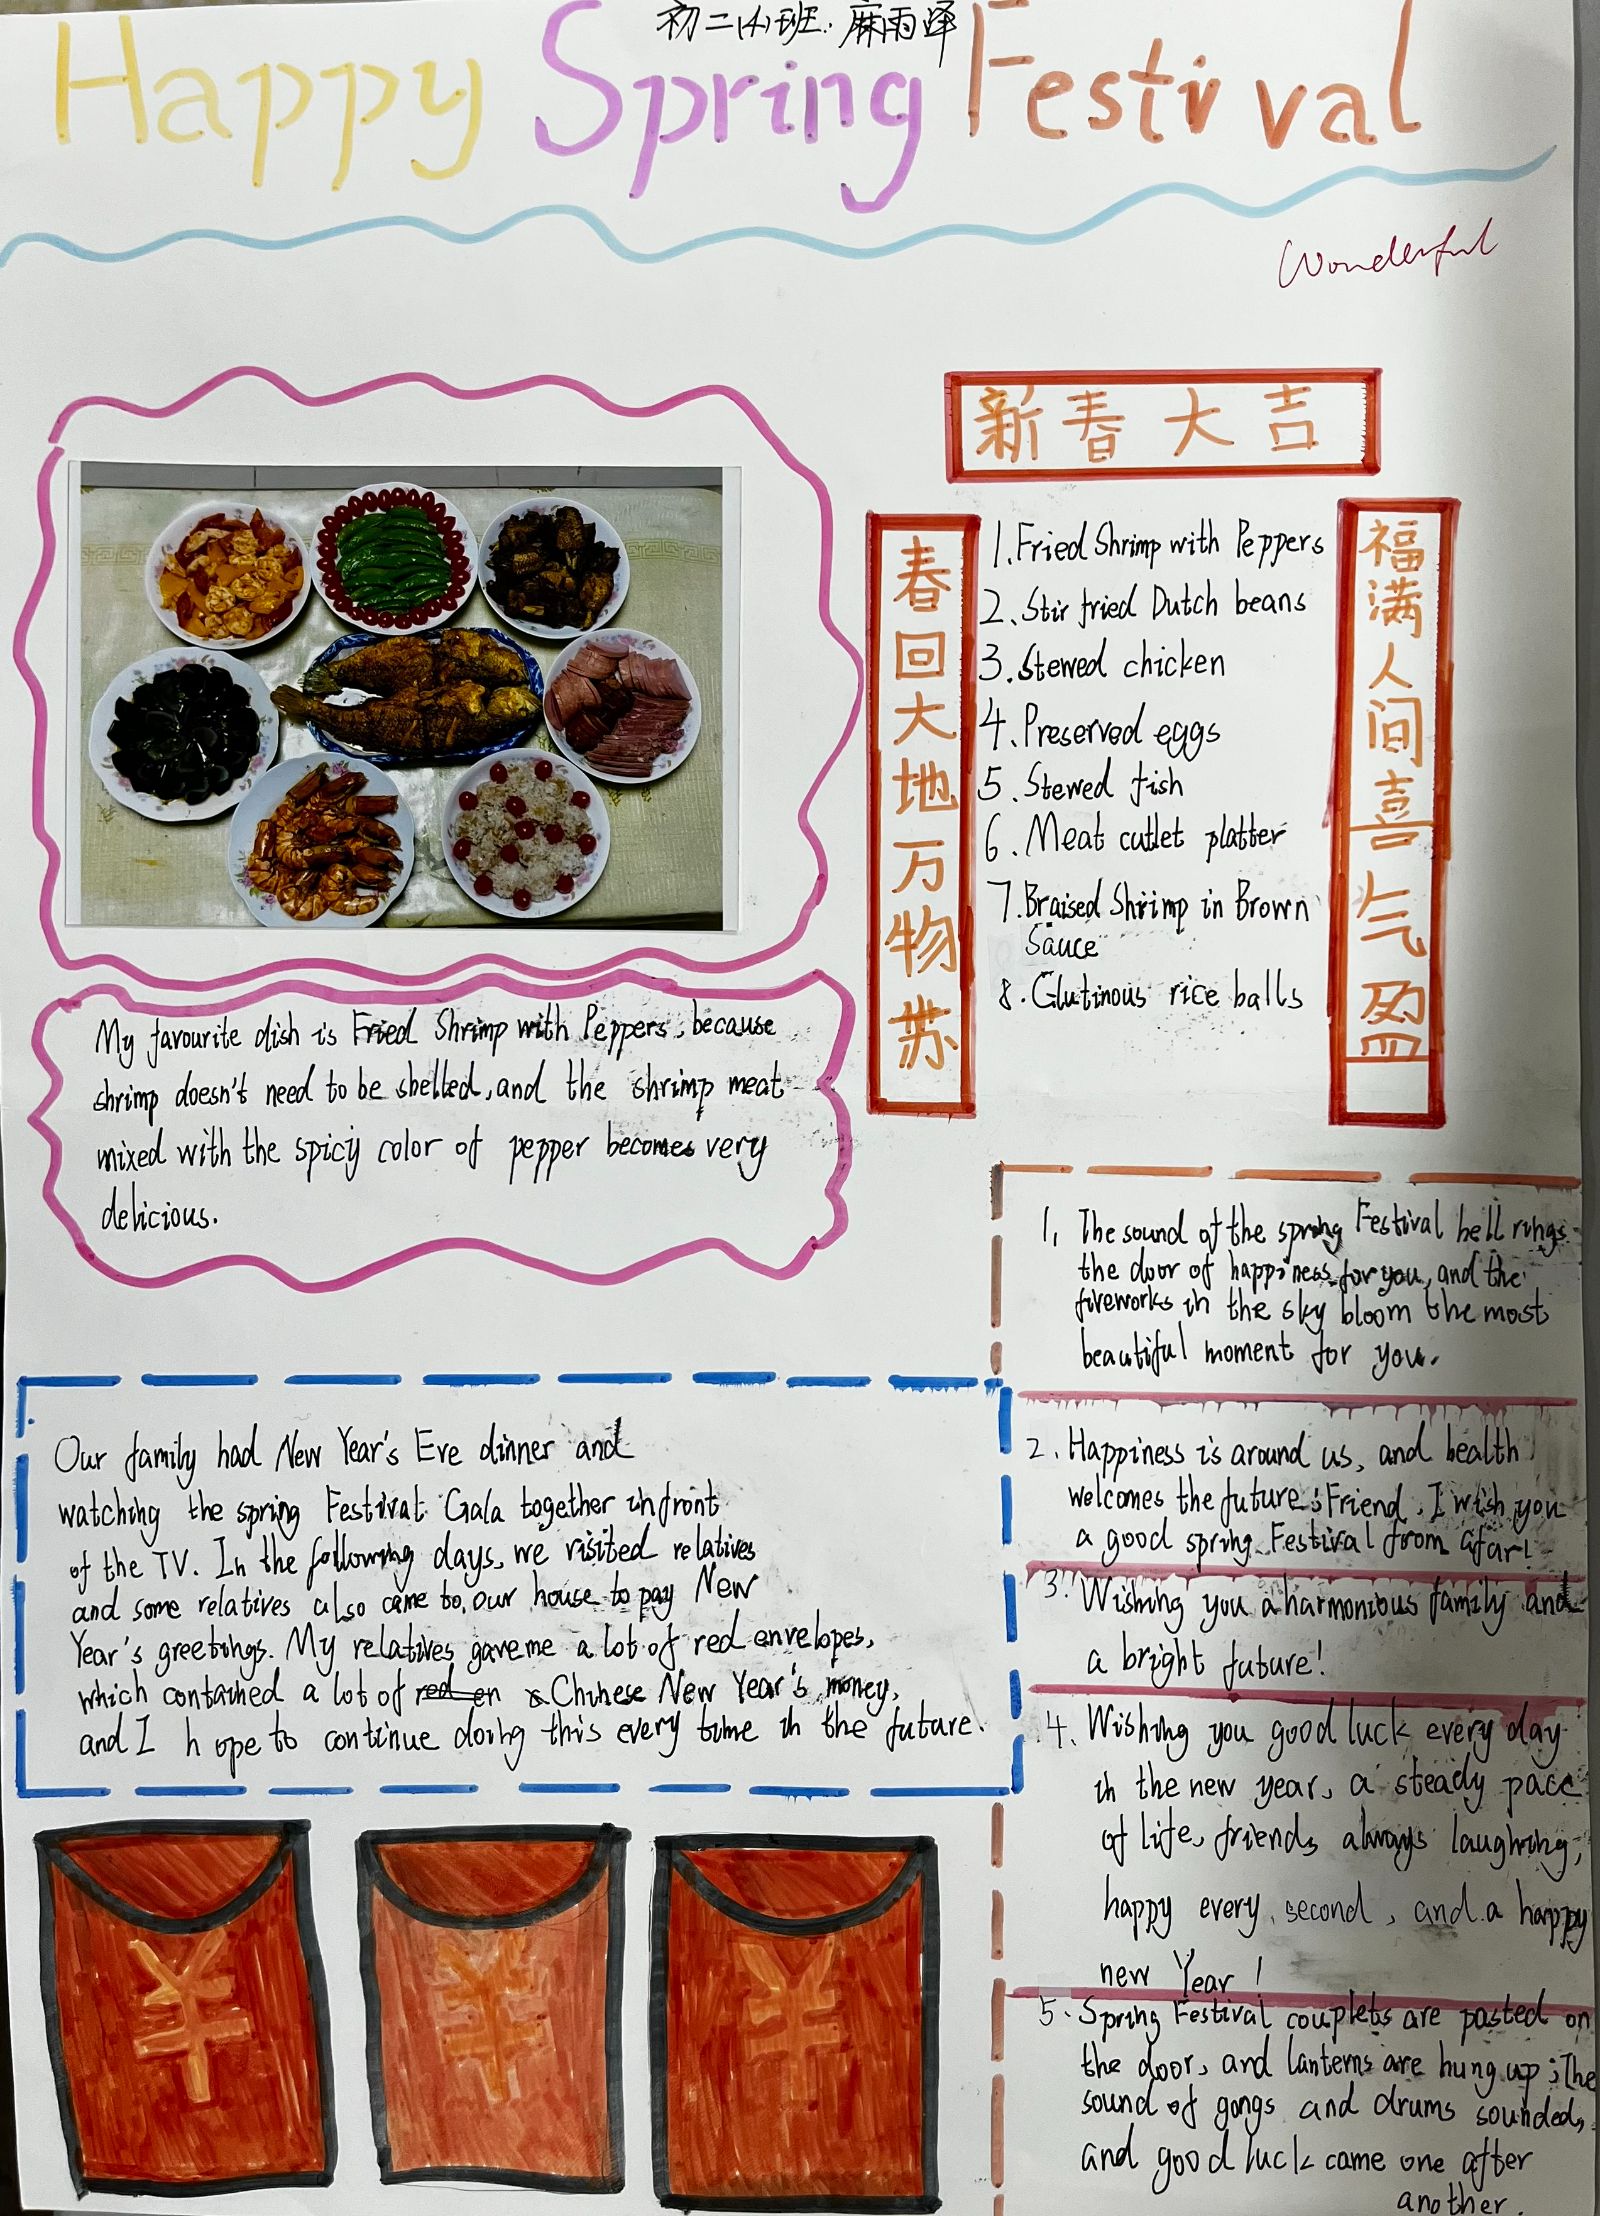 初二(4)班. 麻雨译
Happy Spring Festival
Wonderful
新春大吉
春回大地万物苏
福满人间喜气盈
1. Fried Shrimp with Peppers
2. Stir fried Dutch beans
3. Stewed chicken
4. Preserved eggs
5. Stewed fish
6. Meat cutlet platter
7. Braised Shrimp in Brown
Sauce
8. Glutinous rice balls
My favourite dish is Fried Shrimp with Peppers, because
shrimp doesn't need to be shelled, and the shrimp meat
mixed with the spicy color of pepper becomes very
delicious.
Our family had New Year's Eve dinner and
watching the spring Festival Gala together in front
of the TV. In the following days, we visited relatives
and some relatives also came to our house to pay New
Year's greetings. My relatives gave me a lot of red envelopes,
which contained a lot of red en Chinese New Year's money,
and I hope to continue doing this every time in the future.
1, The sound of the spring Festival bell rings
the door of happiness for you, and the
fireworks in the sky bloom the most
beautiful moment for you.
2. Happiness is around us, and health
welcomes the future; Friend, I wish you
a good spring Festival from afar!
3. Wishing you a harmonious family and
a bright future!
4. Wishing you good luck every day
in the new year, a steady pace
of life, friends always laughing,
happy every second, and a happy
new Year!
5. Spring Festival couplets are pasted on
the door, and lanterns are hung up; The
sound of gongs and drums sounded,
and good luck came one after
another.
¥
¥
¥